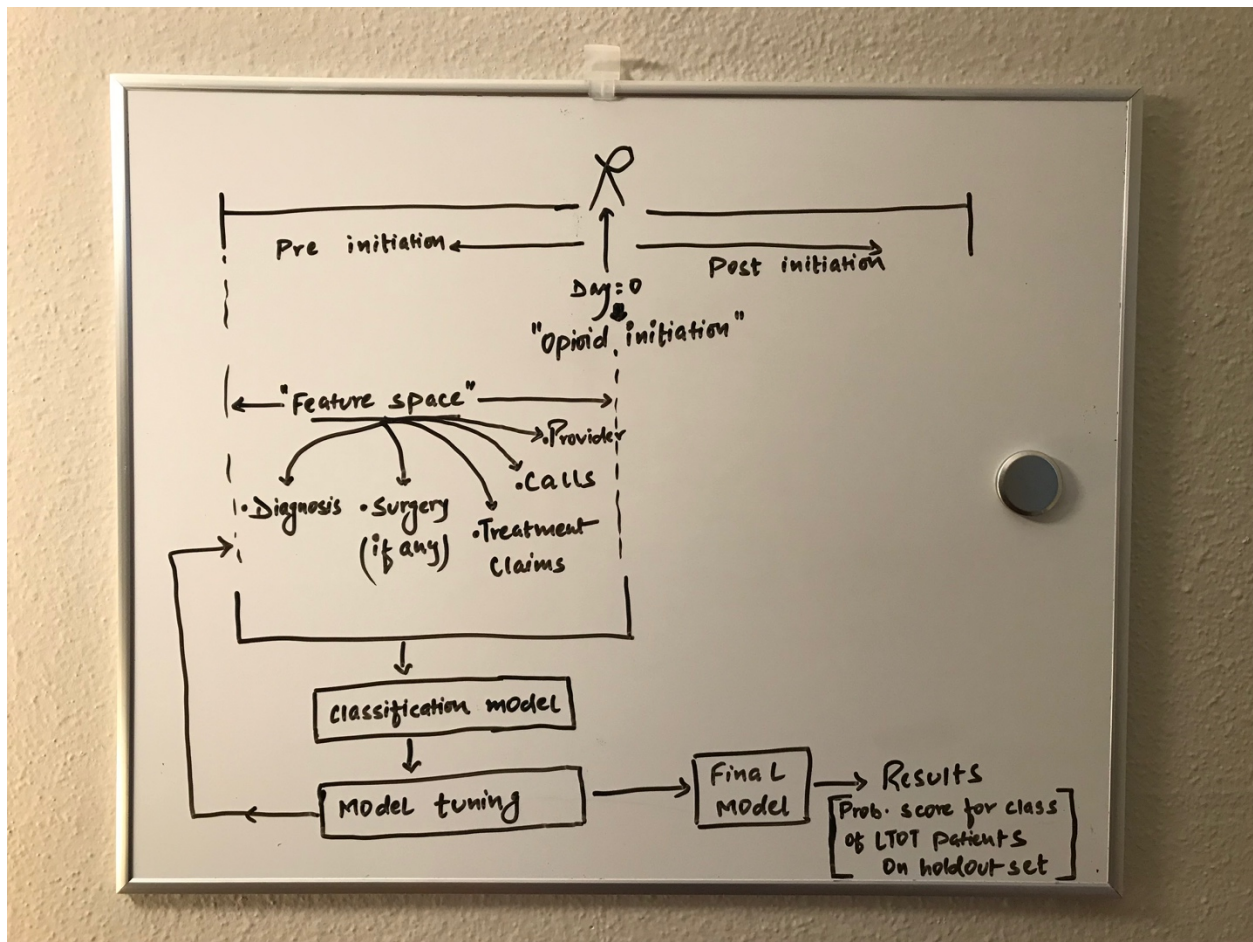 Pre initiation
Post initiation
Day = 0
"Opioid initiation"
"Feature space"
• Provider
• Calls
• Diagnosis
• Surgery
(if any)
• Treatment
Claims
classification model
Model tuning
Final
Model
Results
[Prob. score for class
of LTOT Patients
On holdout set]